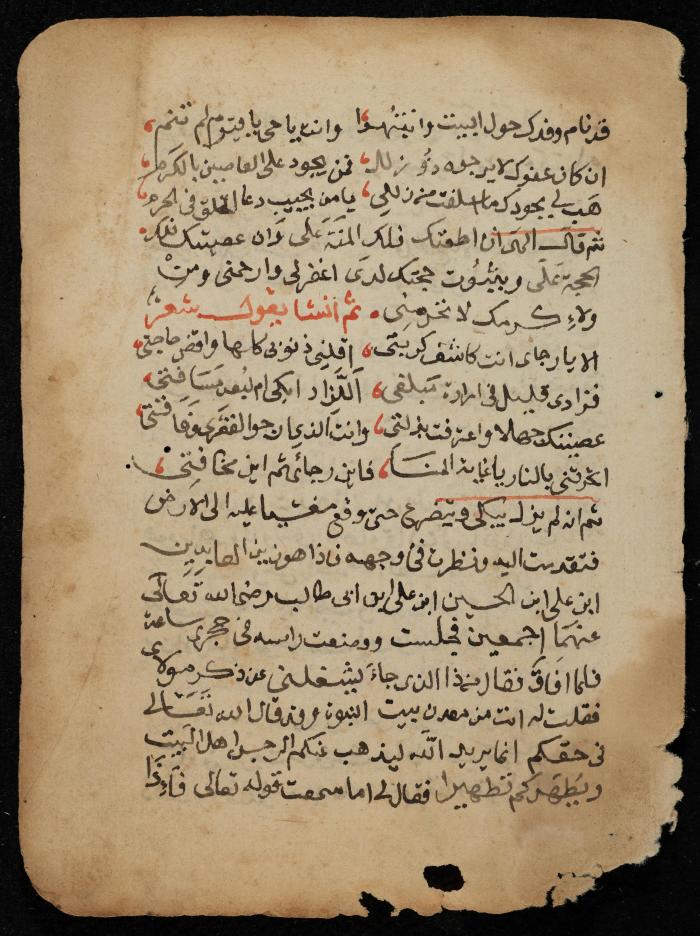 قد نام وفدك حول البيت وانتبهوا وانت يا حي يا قيوم لم تنم
ان كان عفوك لا يرجوه ذو زلل فمن يجود على العاصين بالكرم
هب لي بجودك ما اسلفت من زللي يا من يجيب دعا الخلق في الحرم
ثم قال الهى ان اطعتك فلك المنة علي وان عصيتك فلك
الحجة علي وبثبوت حجتك لدي اغفر لي وارحمني ومن
ولاء كرمك لا تحرمني ثم انشا يقول شعر
الا يا رجاي انت كاشف كربتي اقلني ذنوبي كلها واقض حاجتي
فزادي قليل في اراه مبلغي اللزاد ابكي ام لبعد مسافتي
عصيتك جهلا واعترفت بزلتي وانت الذي
اتحرقني بالنار يا غاية المنا فاين رجائي ثم اين مخافتي
ثم انه لم يزل يبكي ويتضرع حتى وقع مغشيا عليه الى الارض
فتقدمت اليه ونظرت في وجهه فاذا هو زين العابدين
ابن علي ابن الحسين ابن علي ابن ابي طالب رضي الله تعالى
عنهما اجمعين فجلست ووضعت راسه في حجري ساعة
فلما افاق فقال من ذا الذي جاء يشغلني عن ذكر مولاي
فقلت له انت من معدن بيت النبوة وقد قال الله تعالى
في حقكم انما يريد الله ليذهب عنكم الرجس اهل البيت
ويطهركم تطهيرا فقال لي اما سمعت قوله تعالى فاذا